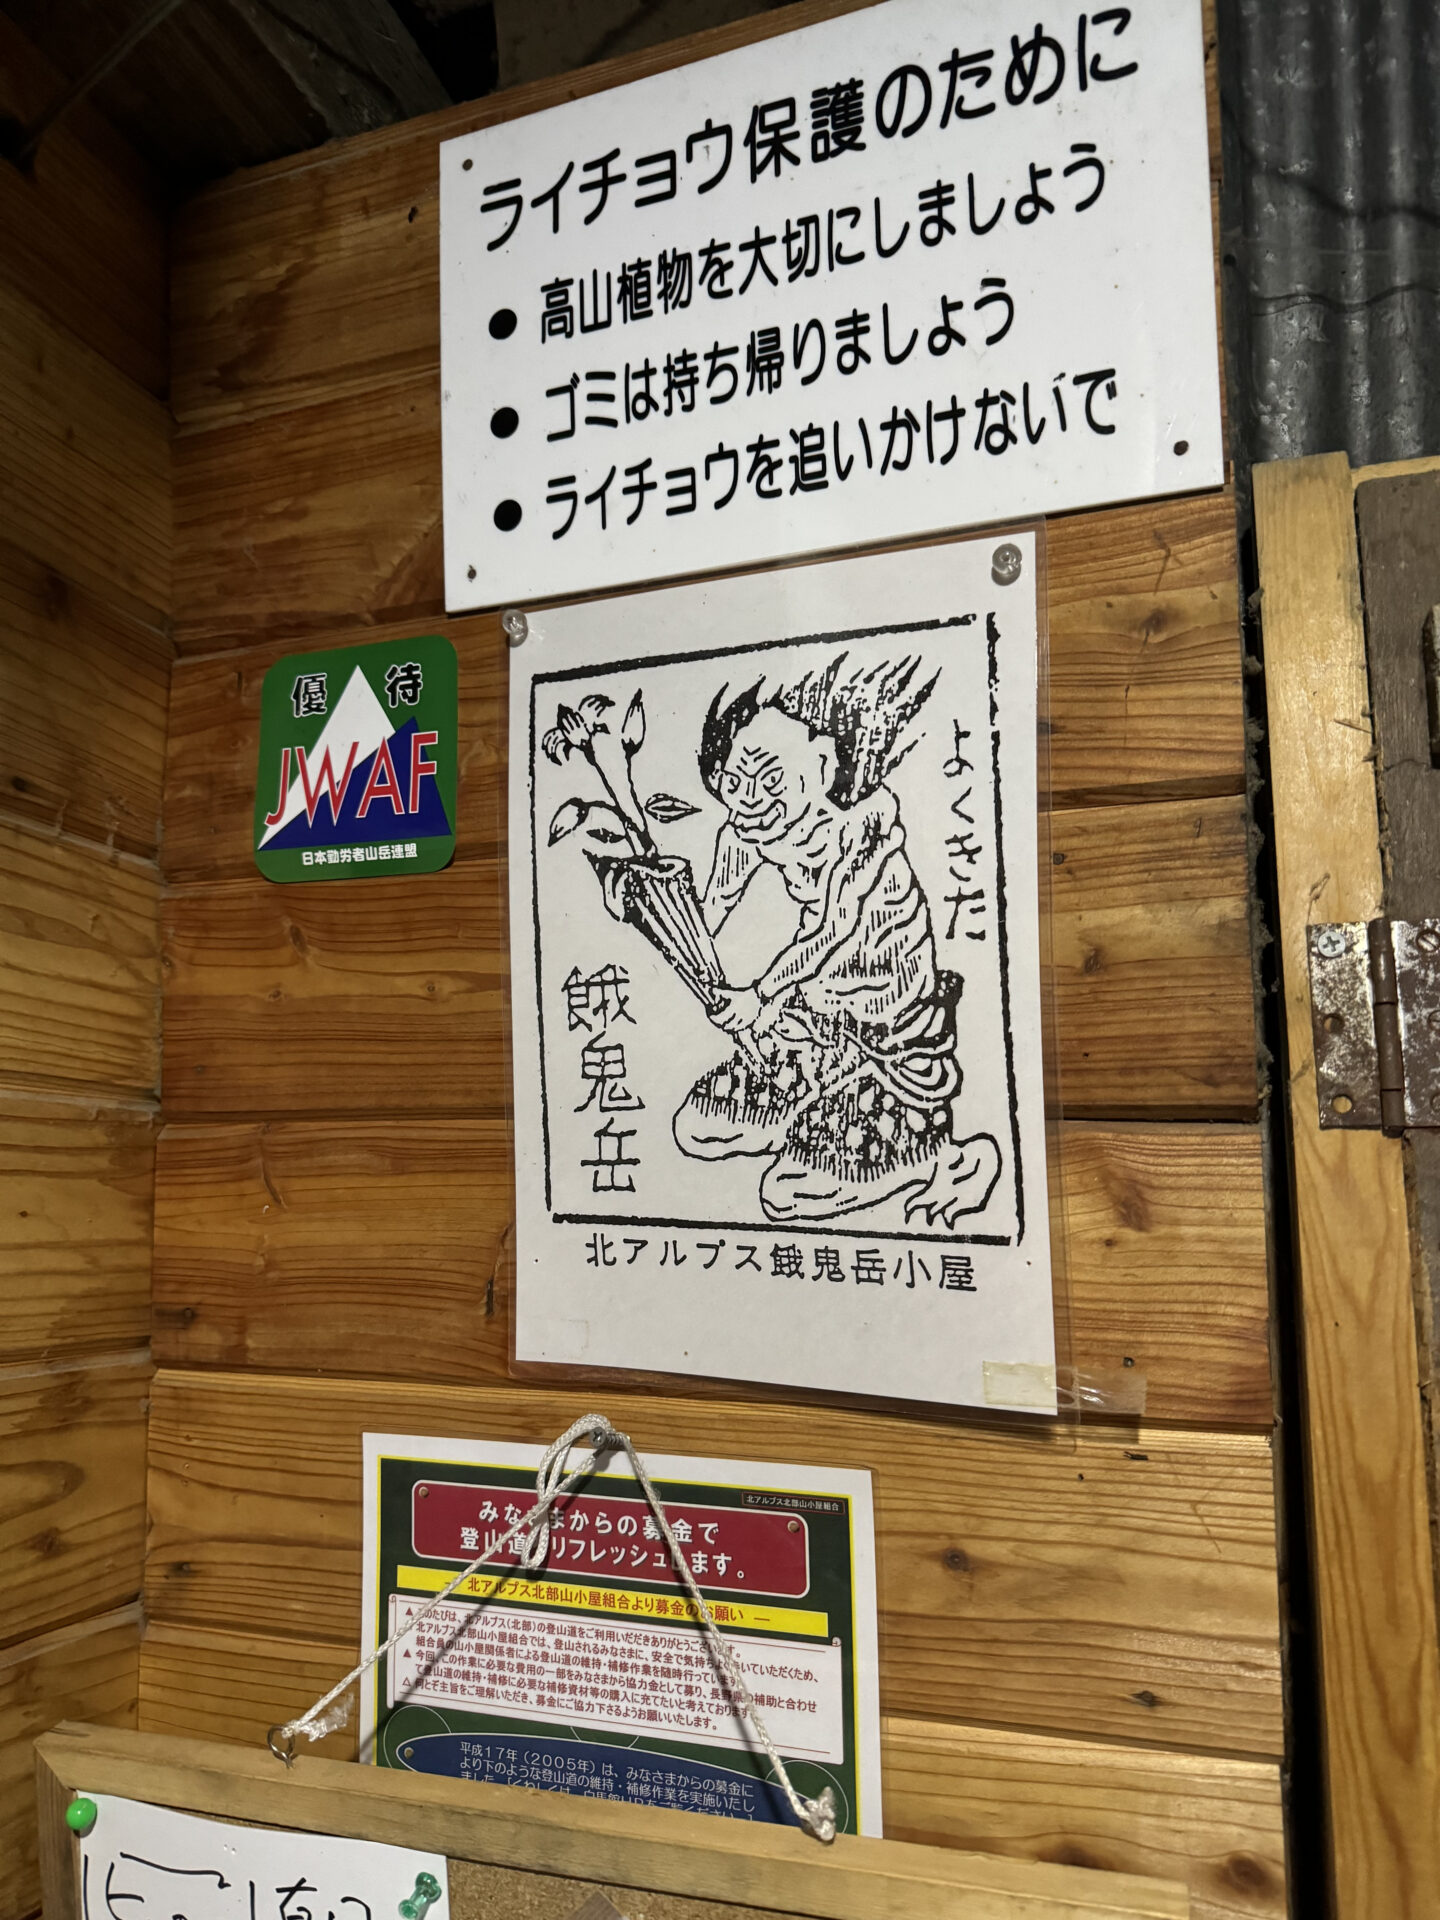 ライチョウ保護のために
● 高山植物を大切にしましょう
● ゴミは持ち帰りましょう
● ライチョウを追いかけないで
優待
JWAF
日本勤労者山岳連盟
よくきた
餓鬼岳
北アルプス餓鬼岳小屋
北アルプス北部山小屋組合
みなさまからの募金で
登山道をリフレッシュします。
北アルプス北部山小屋組合より募金のお願い ―
▲このたびは、北アルプス(北部)の登山道をご利用いただきありがとうございます。
北アルプス北部山小屋組合では、登山されるみなさまに、安全で気持ちよく歩いていただくため、
組合員の山小屋関係者による登山道の維持・補修作業を随時行っています。
▲今回、この作業に必要な費用の一部をみなさまから協力金として募り、長野県の補助と合わせ
て登山道の維持・補修に必要な補修資材等の購入に充てたいと考えております。
△何とぞ主旨をご理解いただき、募金にご協力下さるようお願いいたします。
平成17年(2005年)は、みなさまからの募金に
より下のような登山道の維持・補修作業を実施いたし
ました。